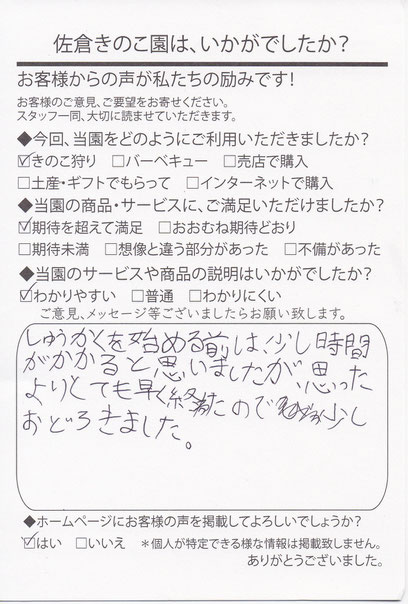 佐倉きのこ園は、いかがでしたか？
お客様からの声が私たちの励みです！
お客様のご意見、ご要望をお寄せください。
スタッフ一同、大切に読ませていただきます。
◆今回、当園をどのようにご利用いただきましたか？
☑きのこ狩り　□バーベキュー　□売店で購入
□土産・ギフトでもらって　□インターネットで購入
◆当園の商品・サービスに、ご満足いただけましたか？
☑期待を超えて満足　□おおむね期待どおり
□期待未満　□想像と違う部分があった　□不備があった
◆当園のサービスや商品の説明はいかがでしたか？
☑わかりやすい　□普通　□わかりにくい
ご意見、メッセージ等ございましたらお願い致します。
しゅうかくを始める前は、少し時間
がかかると思いましたが、思った
よりとても早く終わたので少し
おどろきました。
◆ホームページにお客様の声を掲載してよろしいでしょうか？
☑はい　□いいえ　＊個人が特定できる様な情報は掲載致しません。
ありがとうございました。